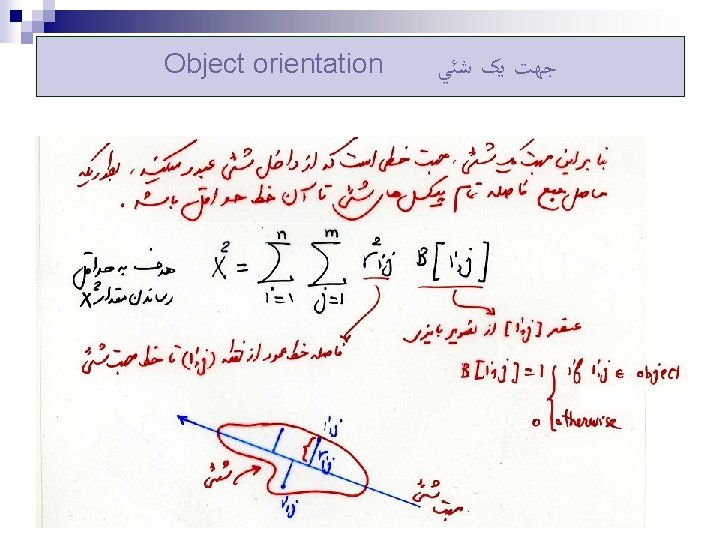 Object orientation جهت یک شئي
بنابراین جهت یک شئی، جهت خطی است که از داخل شئی عبور میکند، بطوریکه
حاصل جمع فاصله تمام پیکسل‌های شئی تا آن خط حداقل باشد.
هدف به حداقل
رساندن مقدار X²
X² = Σ_{i=1}^{n} Σ_{j=1}^{m} r²ij B[i,j]
عنصر [i,j] از تصویر باینری
فاصله خط عمود از نقطه (i,j) تا خط جهت شئی
B[i,j]=1 { if i,j ∈ object
0 otherwise
i,j
rij
شئی
i,j
جهت شئی